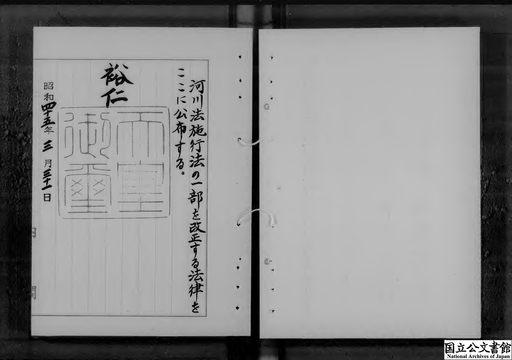 河川法施行法の一部を改正する法律を
ここに公布する。
裕仁
天皇
御璽
昭和四十五年三月三十一日
国立公文書館
National Archives of Japan